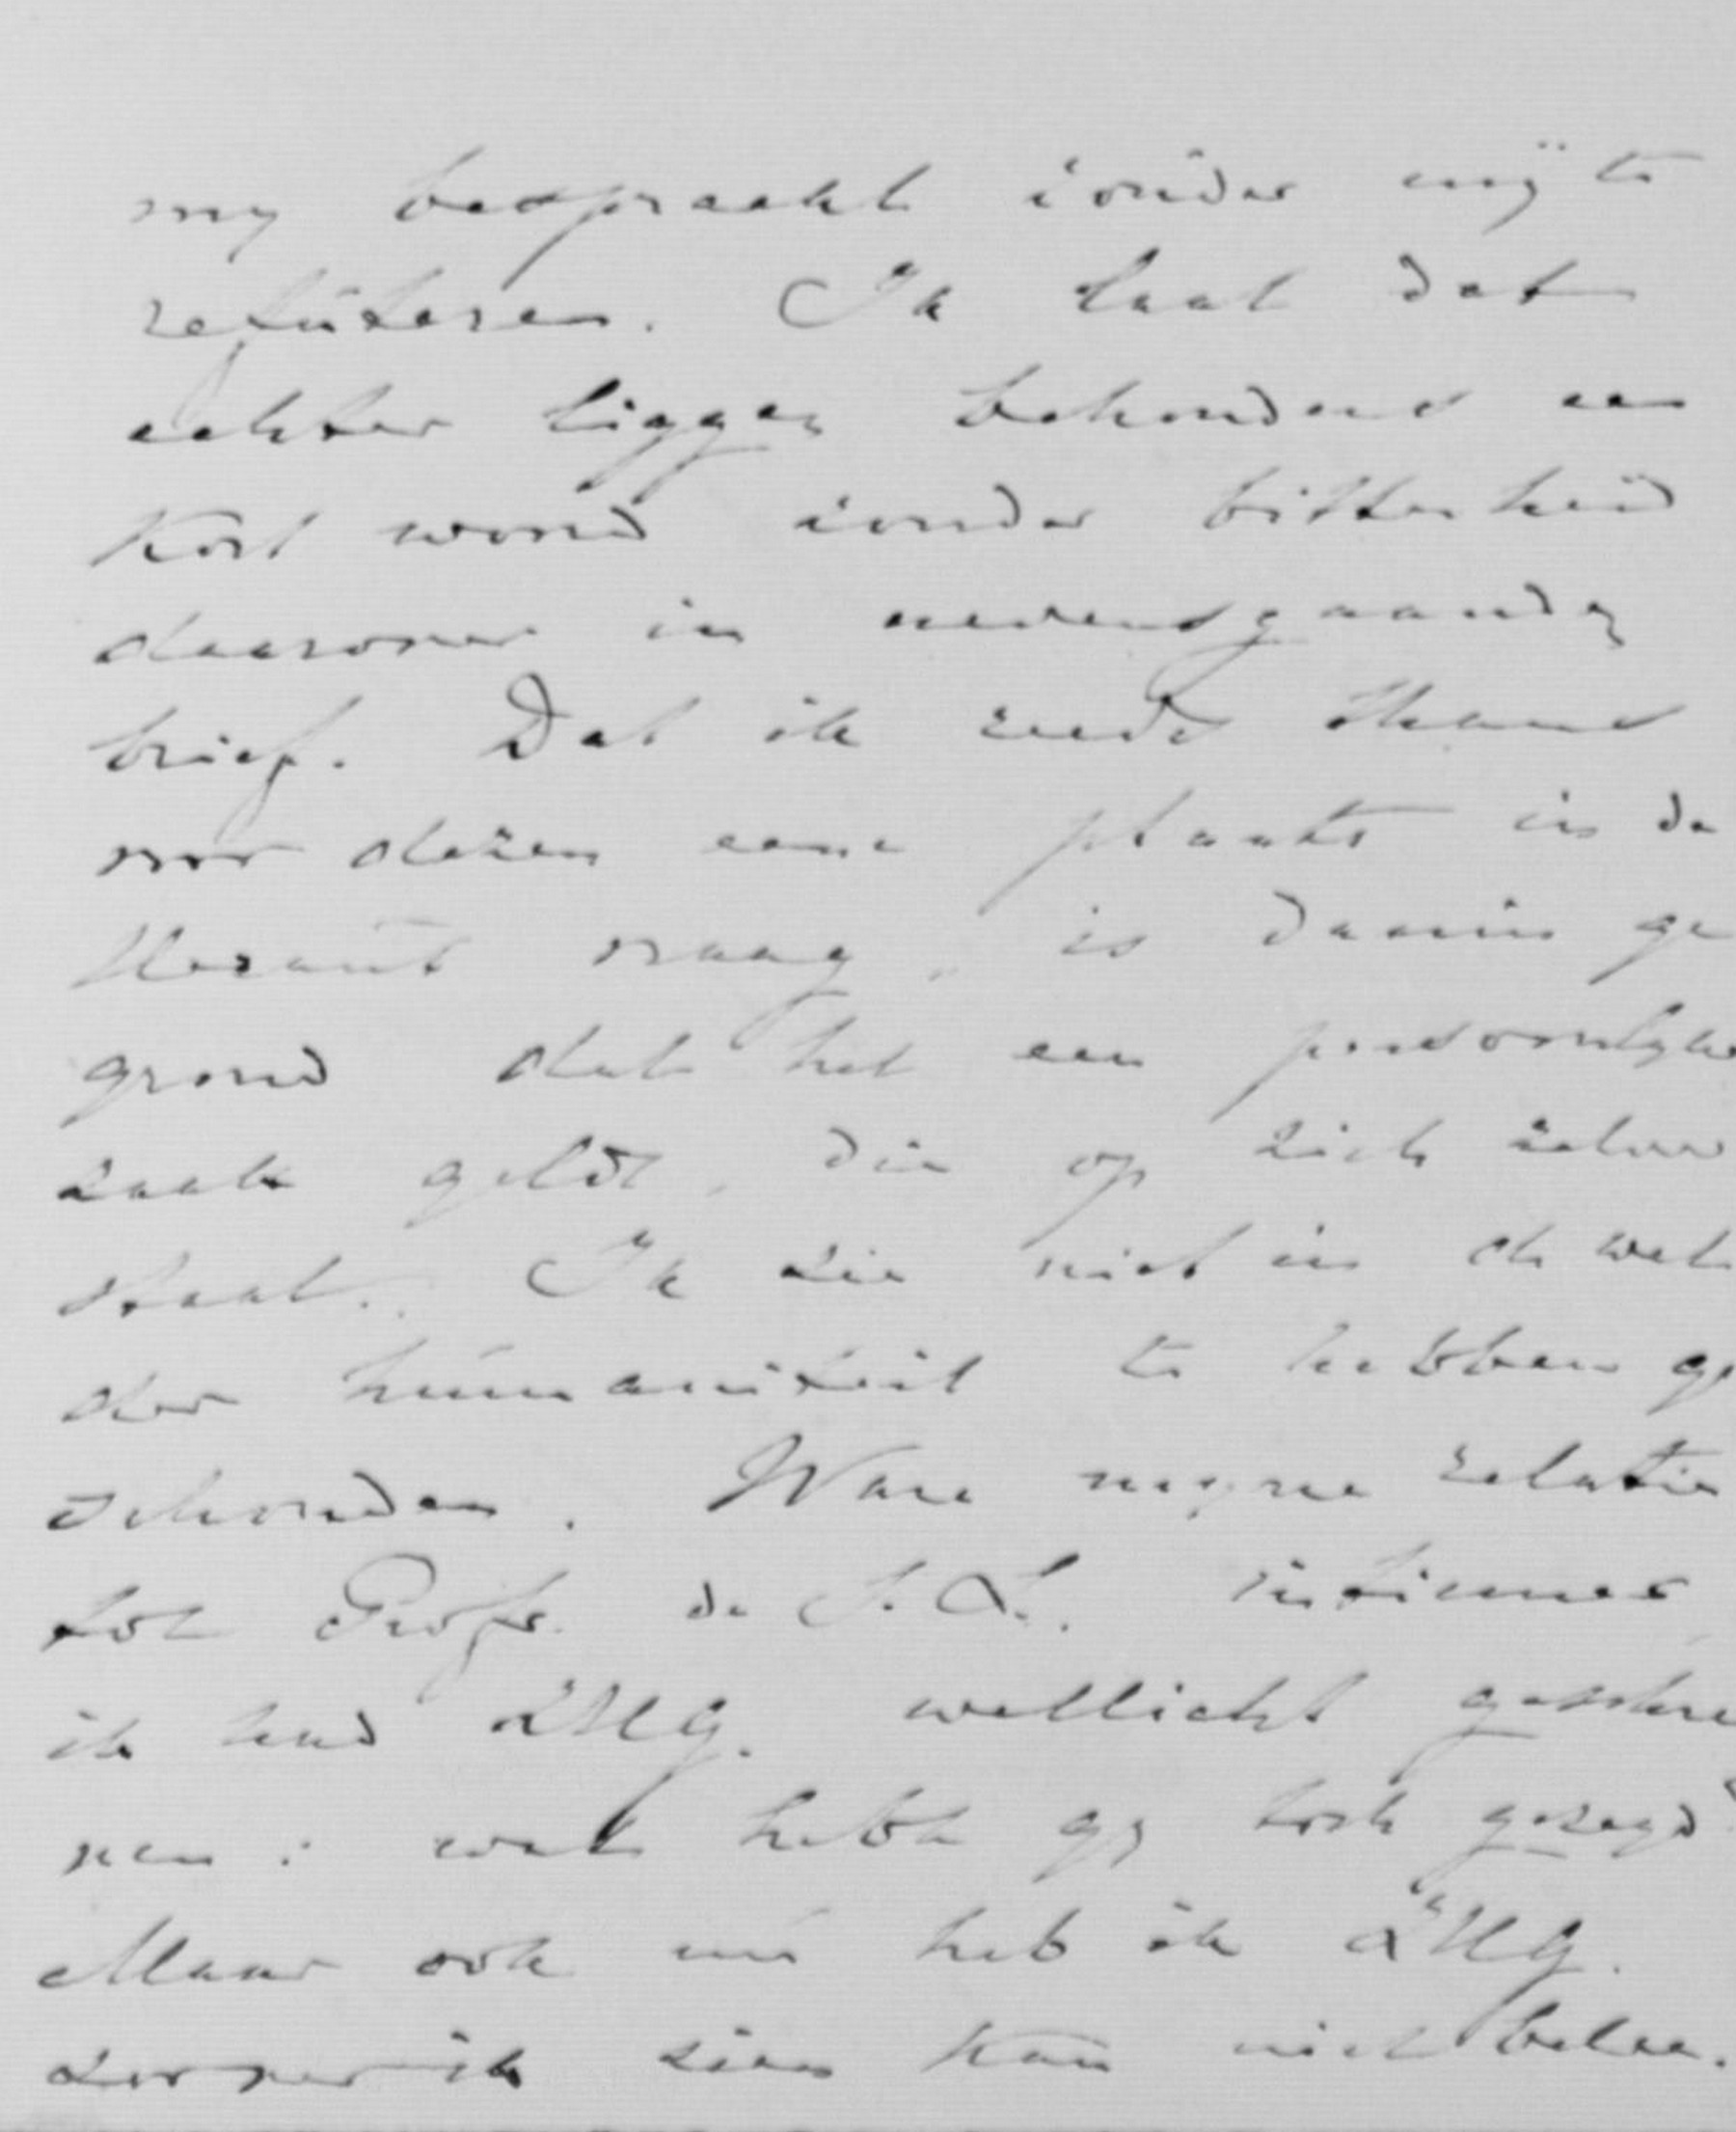 my bespreekt zonder mij te
refuteren. Ik laat dat
echter liggen behoudens een
kort woord zonder bitterheid
daarover in nevensgaanden
brief. Dat ik reeds thans
voor dezen eene plaats in de
Heraut vraag, is daarin ge
grond dat het een persoonlyke
zaak geldt, die op zich zelve
staat. Ik zie niet in de wet
der humaniteit te hebben ge
schonden. Ware myne relatie
tot Profr. de S. L. intiemer
ik had ZHG. wellicht geschre
ven: wat hebt gy toch gezegd?
Maar ook nú heb ik ZHG.
zoover ik zien kan niet belee.